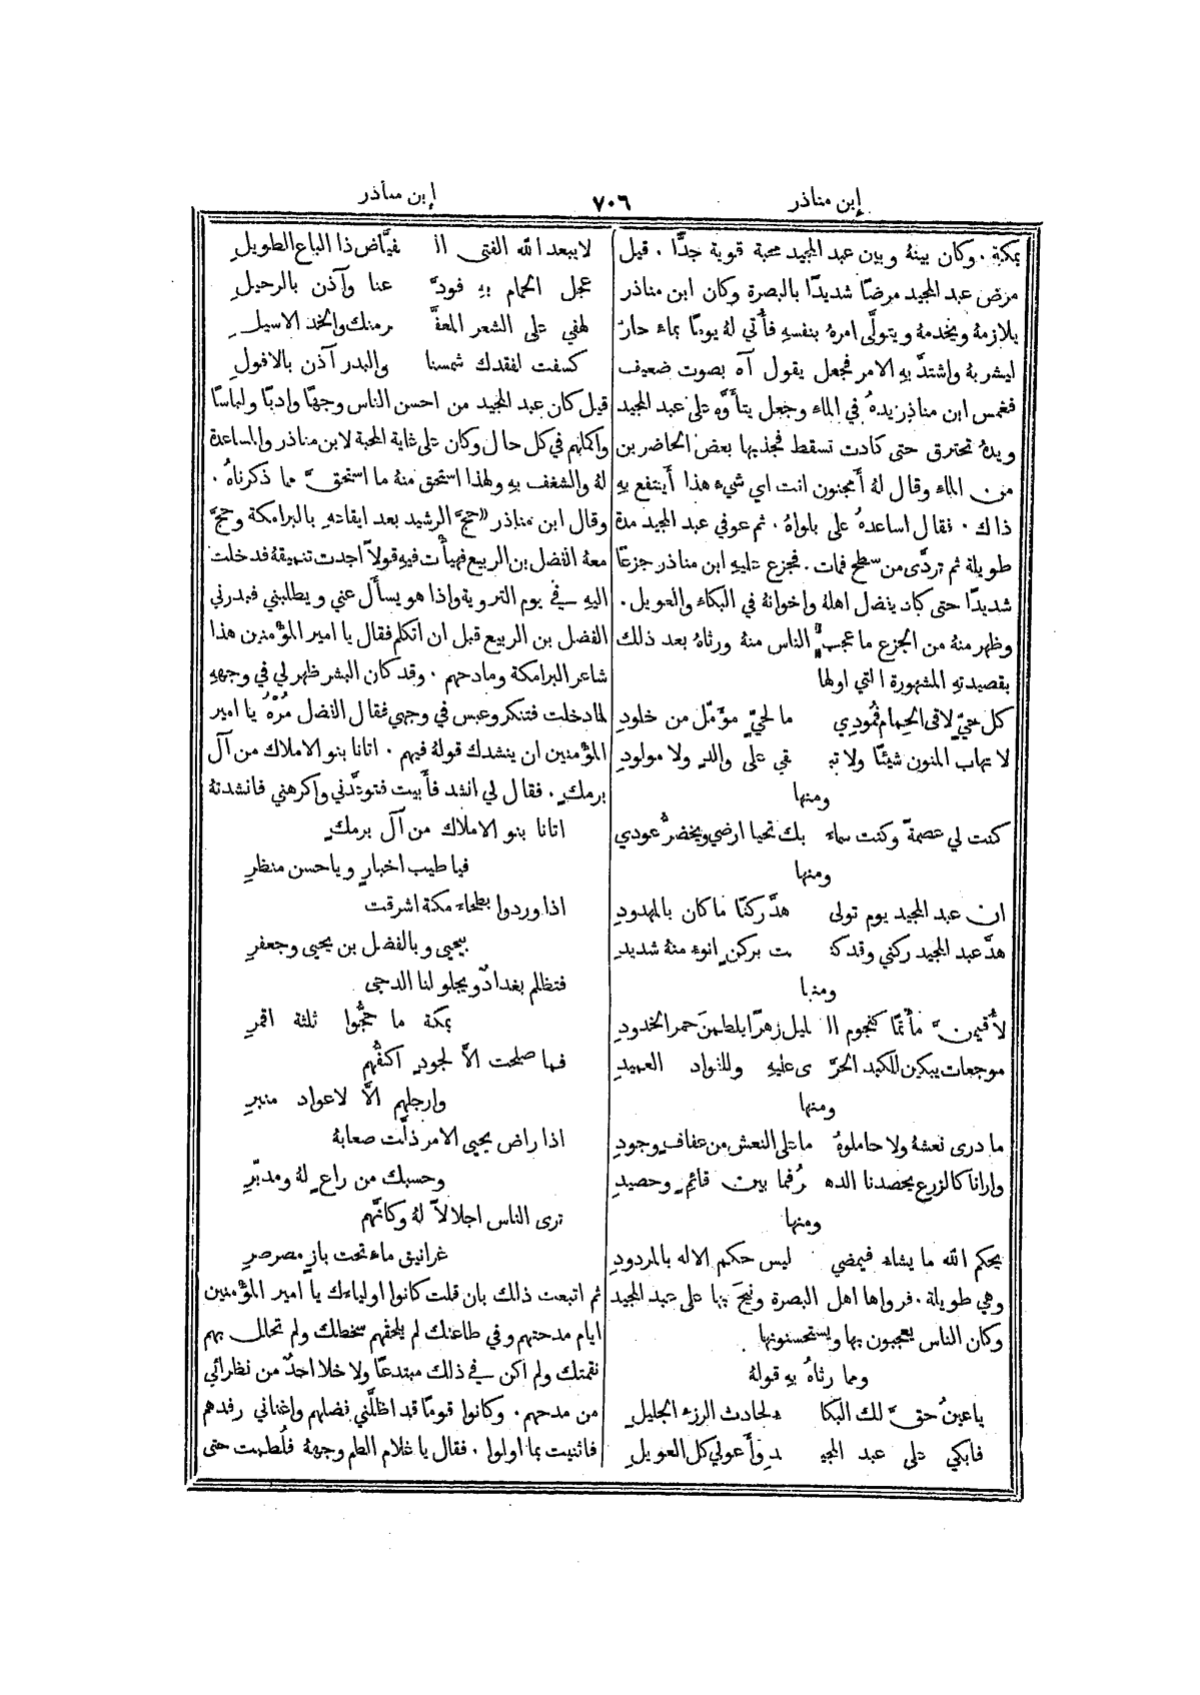 إبن مناذر
٧٠٦
إبن مناذر
بمكة . وكان بينهُ وبين عبد المجيد محبة قوية جدًّا . قيل
مرض عبد المجيد مرضًا شديدًا بالبصرة وكان ابن مناذر
يلازمهُ ويخدمهُ ويتولَّى امرهُ بنفسهِ فأُتي لهُ يومًا بماء حارّ
ليشربهُ واشتدَّ بهِ الامر فجعل يقول آه بصوت ضعيف
فغمس ابن مناذر يدهُ في الماء وجعل يتأَوَّه على عبد المجيد
ويدهُ تحترق حتى كادت تسقط فجذبها بعض الحاضرين
من الماء وقال لهُ أمجنون انت اي شيء هذا أينتفع بهِ
ذاك . فقال اساعدهُ على بلواهُ . ثم عوفي عبد المجيد مدة
طويلة ثم تردَّى من سطح فمات . فجزع عليهِ ابن مناذر جزعًا
شديدًا حتى كاد يفضل اهلهُ واخوانهُ في البكاء والعويل .
وظهر منهُ من الجزع ما عجب الناس منهُ ورثاهُ بعد ذلك
بقصيدتهِ المشهورة التي اولها
كل حيٍّ لاقى الحِمام فمُودِي ما لحيٍّ مؤمَّل من خلودِ
لا تهاب المنون شيئًا ولا تبـ ـقي على والدٍ ولا مولودِ
ومنها
كنت لي عصمةً وكنت سماء بك تحيا ارضي ويخضرُّ عودي
ومنها
ان عبد المجيد يوم تولى هدَّ ركنًا ما كان بالمهدودِ
هدَّ عبد المجيد ركني وقد كنـ ـت بركنٍ انوء منهُ شديدِ
ومنها
لأُقيمنَّ مأتمًا كنجوم الـ ـليل زهرًا يلطمنَ حمر الخدودِ
موجعات يبكين للكبد الحرَّ ى عليهِ وللفواد العميدِ
ومنها
ما درى نعشهُ ولا حاملوهُ ما على النعش من عفافٍ وجودِ
وارانا كالزرع يحصدنا الدهـ ـرُ فما بين قائمٍ وحصيدِ
ومنها
يحكم الله ما يشاء فيمضي ليس حكم الاله بالمردودِ
وهي طويلة . فرواها اهل البصرة ونيحَ بها على عبد المجيد
وكان الناس يعجبون بها ويستحسنونها .
ومما رثاهُ بهِ قولهُ
يا عينُ حقَّ لك البكا ء لحادث الرزء الجليلِ
فابكي على عبد المجيـ ـدِ وأَعولي كل العويلِ
لا يبعد الله الفتى الـ ـفيَّاض ذا الباع الطويلِ
عجل الحمام بهِ فودَّ عنا وآذن بالرحيلِ
لهفي على الشعر المعفَّـ ـر منك والخد الاسيلِ
كسفت لفقدك شمسنا والبدر آذن بالافولِ
قيل كان عبد المجيد من احسن الناس وجهًا وادبًا ولباسًا
واكملهم في كل حال وكان على غاية المحبة لابن مناذر والمساعدة
لهُ والشغف بهِ ولهذا استحق منهُ ما استحقَّ مما ذكرناهُ .
وقال ابن مناذر «حجَّ الرشيد بعد ايقاعهِ بالبرامكة وحجَّ
معهُ الفضل بن الربيع فهيأت فيهِ قولاً اجدت تنميقهُ فدخلت
اليهِ في يوم التروية واذا هو يسأل عني ويطلبني فبدرني
الفضل بن الربيع قبل ان اتكلم فقال يا امير المؤمنين هذا
شاعر البرامكة ومادحهم . وقد كان البشر ظهر لي في وجههِ
لما دخلت فتنكر وعبس في وجهي فقال الفضل مُرْهُ يا امير
المؤمنين ان ينشدك قولهُ فيهم . اتانا بنو الاملاك من آل
برمكٍ . فقال لي انشد فأبيت فتوعَّدني واكرهني فانشدتهُ
اتانا بنو الاملاك من آل برمكٍ
فيا طيب اخبارٍ ويا حسن منظرِ
اذا وردوا بطحاء مكة اشرقت
بيحيى وبالفضل بن يحيى وجعفرِ
فتظلم بغدادٌ ويجلو لنا الدجى
بمكة ما حجُّوا ثلثة اقمرِ
فما صلحت الاَّ لجودٍ اكفُّهم
وارجلهم الاَّ لاعواد منبرِ
اذا راض يحيى الامر ذلَّت صعابهُ
وحسبك من راعٍ لهُ ومدبّرِ
ترى الناس اجلالاً لهُ وكانَّهم
غرانيق ماء تحت بازٍ مصرصرِ
ثم اتبعت ذلك بان قلت كانوا اولياءك يا امير المؤمنين
ايام مدحتهم وفي طاعتك لم يلحقهم سخطك ولم تحلل بهم
نقمتك ولم اكن في ذلك مبتدعًا ولا خلا احدٌ من نظرائي
من مدحهم . وكانوا قومًا قد اظلَّني فضلهم واغناني رفدهم
فاثنيت بما اولوا . فقال يا غلام الطم وجههُ فلُطمت حتى